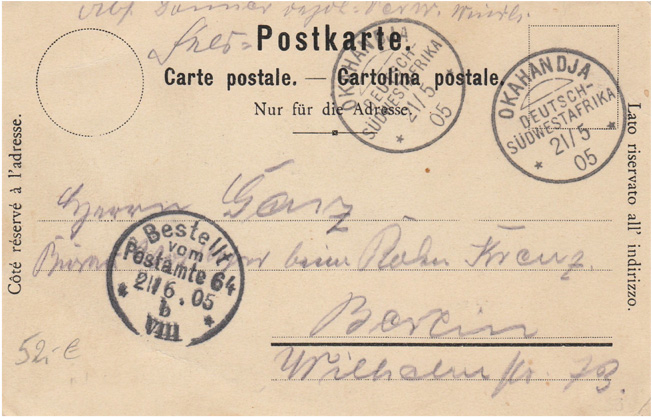 Postkarte.
Carte postale. — Cartolina postale.
Nur für die Adresse.
OKAHANDJA
DEUTSCH-
SÜDWESTAFRIKA
21/5
05
OKAHANDJA
DEUTSCH-
SÜDWESTAFRIKA
21/5
05
Côté réservé à l'adresse.
Lato riservato all' indirizzo.
Herrn
beim Roten Kreuz.
Bestellt
vom
Postamte 64
21/6.05
b
VIII
Berlin
Wilhelmstr. 73.
52,-€